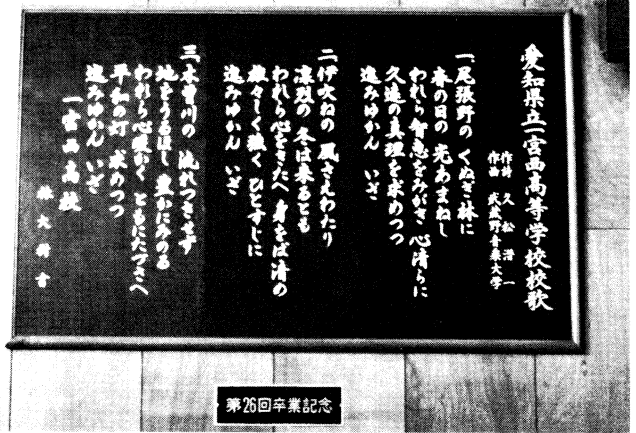 愛知県立一宮西高等学校校歌
作詩 久松潜一
作曲 武蔵野音楽大学
一、尾張野の くぬぎ林に
春の日の 光あまねし
われら智恵をみがき 心清らに
久遠の真理を求めつつ
進みゆかん いざ
二、伊吹ねの 風さえわたり
凛烈の 冬は来るとも
われら心をきたへ 身をば清め
雄々しく強く ひとすじに
進みゆかん いざ
三、木曽川の 流れつきせず
地をうるほし 豊かにみのる
われら心暖かく ともにたづさへ
平和の灯 求めつつ
進みゆかん いざ
一宮西高校
第26回卒業記念